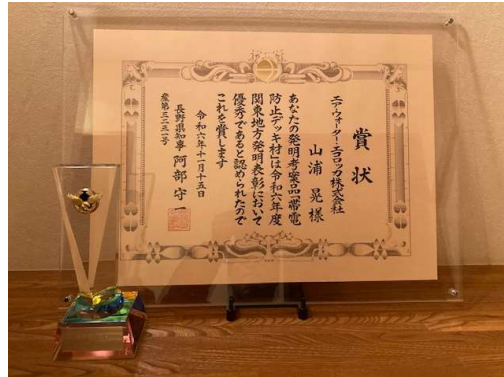 賞状
エア・ウォーター・エコロッカ株式会社
山浦 晃 様
あなたの発明考案品「帯電
防止デッキ材」は令和六年度
関東地方発明表彰において
優秀であると認められたので
これを賞します
令和六年十一月十五日
長野県知事 阿部守一
産第三二三一号